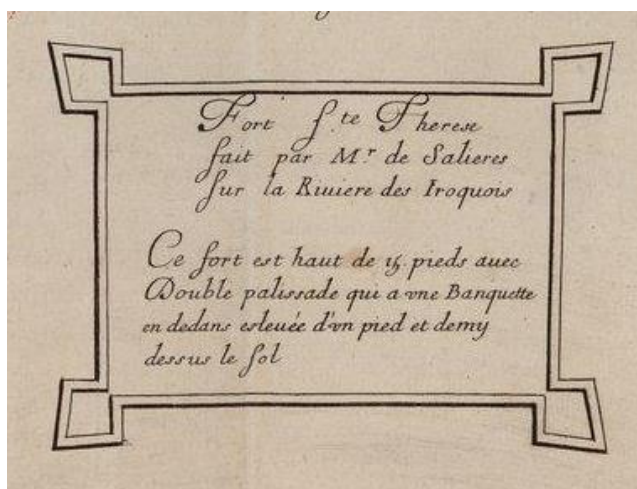 Fort S.te Therese
fait par M.r de Salieres
sur la Riuiere des Iroquois
Ce fort est haut de 15 pieds auec
Double palissade qui a vne Banquette
en dedans esleuée d'vn pied et demy
dessus le sol